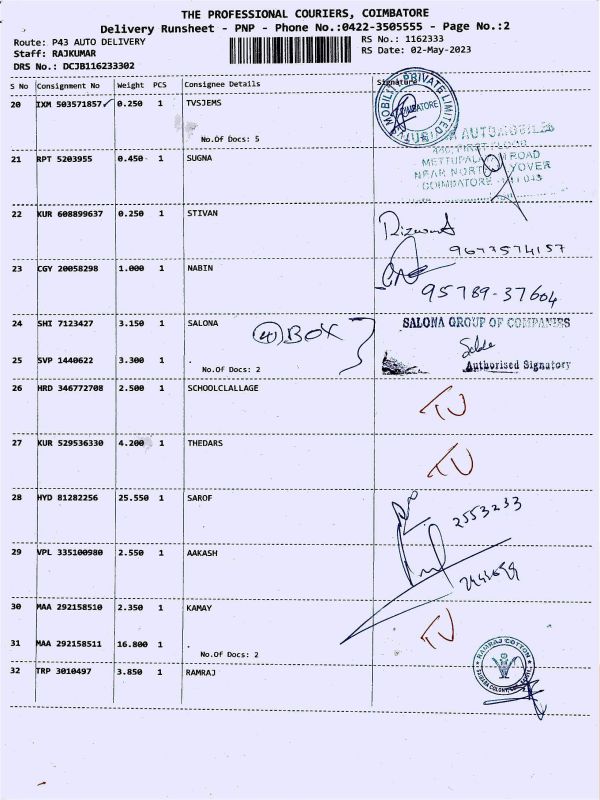 THE PROFESSIONAL COURIERS, COIMBATORE
Delivery Runsheet - PNP - Phone No.:0422-3505555 - Page No.:2
Route: P43 AUTO DELIVERY
RS No.: 1162333
Staff: RAJKUMAR
RS Date: 02-May-2023
DRS No.: DCJB116233302
S No Consignment No Weight PCS Consignee Details Signature
20 IXM 503571857 0.250 1 TVSJEMS
No.Of Docs: 5
MOBILITY PRIVATE LIMITED
COIMBATORE
AUTOMOBILES
FIRST FLOOR
ROAD
NEAR NORTH
COIMBATORE
21 RPT 5203955 0.450 1 SUGNA
22 KUR 608899637 0.250 1 STIVAN
23 CGY 20058298 1.000 1 NABIN
95789-37604
24 SHI 7123427 3.150 1 SALONA
(4) BOX
SALONA GROUP OF COMPANIES
Authorised Signatory
25 SVP 1440622 3.300 1
No.Of Docs: 2
26 HRD 346772708 2.500 1 SCHOOLCLALLAGE
TU
27 KUR 529536330 4.200 1 THEDARS
TU
28 HYD 81282256 25.550 1 SAROF
2553233
29 VPL 335100980 2.550 1 AAKASH
30 MAA 292158510 2.350 1 KAMAY
TU
31 MAA 292158511 16.800 1
No.Of Docs: 2
32 TRP 3010497 3.850 1 RAMRAJ
RAMRAJ COTTON